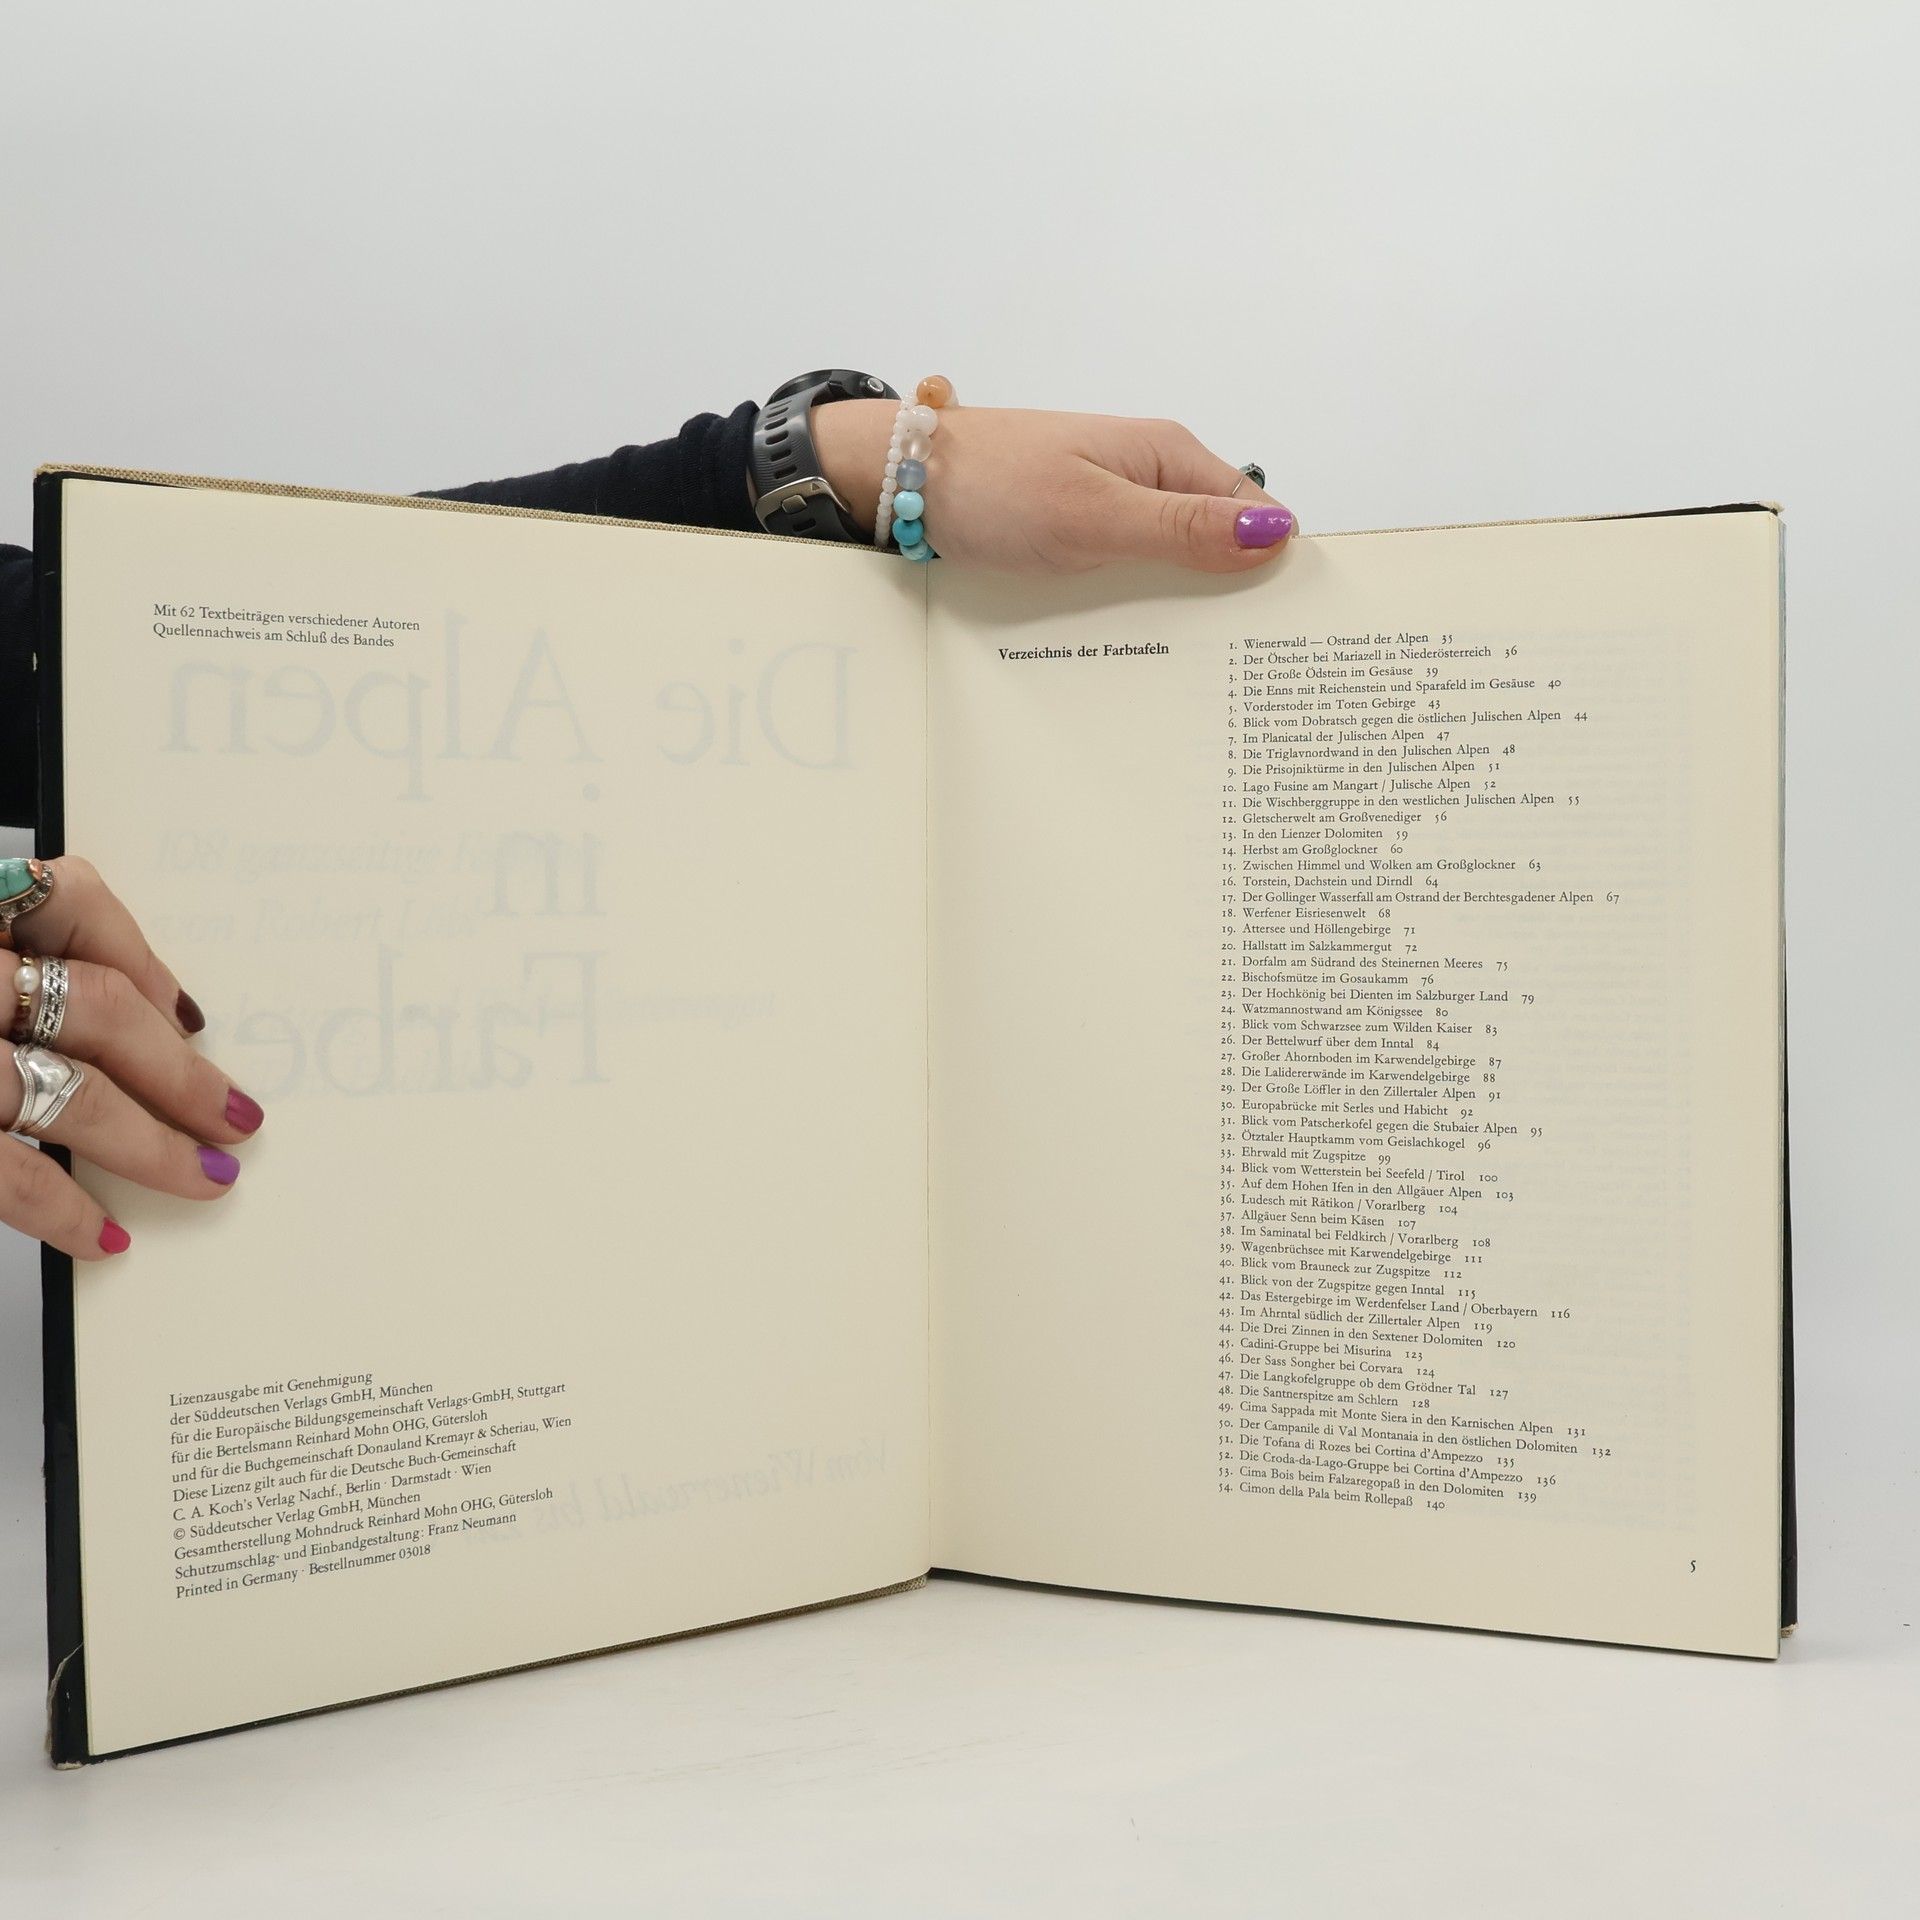 Mit 62 Textbeiträgen verschiedener Autoren
Quellennachweis am Schluß des Bandes
Die Alpen
in
Farben
108 ganzseitige
von Robert
Vom Wienerwald bis
Lizenzausgabe mit Genehmigung
der Süddeutschen Verlags GmbH, München
für die Europäische Bildungsgemeinschaft Verlags-GmbH, Stuttgart
für die Bertelsmann Reinhard Mohn OHG, Gütersloh
und für die Buchgemeinschaft Donauland Kremayr & Scheriau, Wien
Diese Lizenz gilt auch für die Deutsche Buch-Gemeinschaft
C. A. Koch's Verlag Nachf., Berlin · Darmstadt · Wien
© Süddeutscher Verlag GmbH, München
Gesamtherstellung Mohndruck Reinhard Mohn OHG, Gütersloh
Schutzumschlag- und Einbandgestaltung: Franz Neumann
Printed in Germany · Bestellnummer 03018
Verzeichnis der Farbtafeln
1. Wienerwald — Ostrand der Alpen 35
2. Der Ötscher bei Mariazell in Niederösterreich 36
3. Der Große Ödstein im Gesäuse 39
4. Die Enns mit Reichenstein und Sparafeld im Gesäuse 40
5. Vorderstoder im Toten Gebirge 43
6. Blick vom Dobratsch gegen die östlichen Julischen Alpen 44
7. Im Planicatal der Julischen Alpen 47
8. Die Triglavnordwand in den Julischen Alpen 48
9. Die Prisojniktürme in den Julischen Alpen 51
10. Lago Fusine am Mangart / Julische Alpen 52
11. Die Wischberggruppe in den westlichen Julischen Alpen 55
12. Gletscherwelt am Großvenediger 56
13. In den Lienzer Dolomiten 59
14. Herbst am Großglockner 60
15. Zwischen Himmel und Wolken am Großglockner 63
16. Torstein, Dachstein und Dirndl 64
17. Der Gollinger Wasserfall am Ostrand der Berchtesgadener Alpen 67
18. Werfener Eisriesenwelt 68
19. Attersee und Höllengebirge 71
20. Hallstatt im Salzkammergut 72
21. Dorfalm am Südrand des Steinernen Meeres 75
22. Bischofsmütze im Gosaukamm 76
23. Der Hochkönig bei Dienten im Salzburger Land 79
24. Watzmannostwand am Königssee 80
25. Blick vom Schwarzsee zum Wilden Kaiser 83
26. Der Bettelwurf über dem Inntal 84
27. Großer Ahornboden im Karwendelgebirge 87
28. Die Lalidererwände im Karwendelgebirge 88
29. Der Große Löffler in den Zillertaler Alpen 91
30. Europabrücke mit Serles und Habicht 92
31. Blick vom Patscherkofel gegen die Stubaier Alpen 95
32. Ötztaler Hauptkamm vom Geislachkogel 96
33. Ehrwald mit Zugspitze 99
34. Blick vom Wetterstein bei Seefeld / Tirol 100
35. Auf dem Hohen Ifen in den Allgäuer Alpen 103
36. Ludesch mit Rätikon / Vorarlberg 104
37. Allgäuer Senn beim Käsen 107
38. Im Saminatal bei Feldkirch / Vorarlberg 108
39. Wagenbrüchsee mit Karwendelgebirge 111
40. Blick vom Brauneck zur Zugspitze 112
41. Blick von der Zugspitze gegen Inntal 115
42. Das Estergebirge im Werdenfelser Land / Oberbayern 116
43. Im Ahrntal südlich der Zillertaler Alpen 119
44. Die Drei Zinnen in den Sextener Dolomiten 120
45. Cadini-Gruppe bei Misurina 123
46. Der Sass Songher bei Corvara 124
47. Die Langkofelgruppe ob dem Grödner Tal 127
48. Die Santnerspitze am Schlern 128
49. Cima Sappada mit Monte Siera in den Karnischen Alpen 131
50. Der Campanile di Val Montanaia in den östlichen Dolomiten 132
51. Die Tofana di Rozes bei Cortina d'Ampezzo 135
52. Die Croda-da-Lago-Gruppe bei Cortina d'Ampezzo 136
53. Cima Bois beim Falzaregopaß in den Dolomiten 139
54. Cimon della Pala beim Rollepaß 140
5